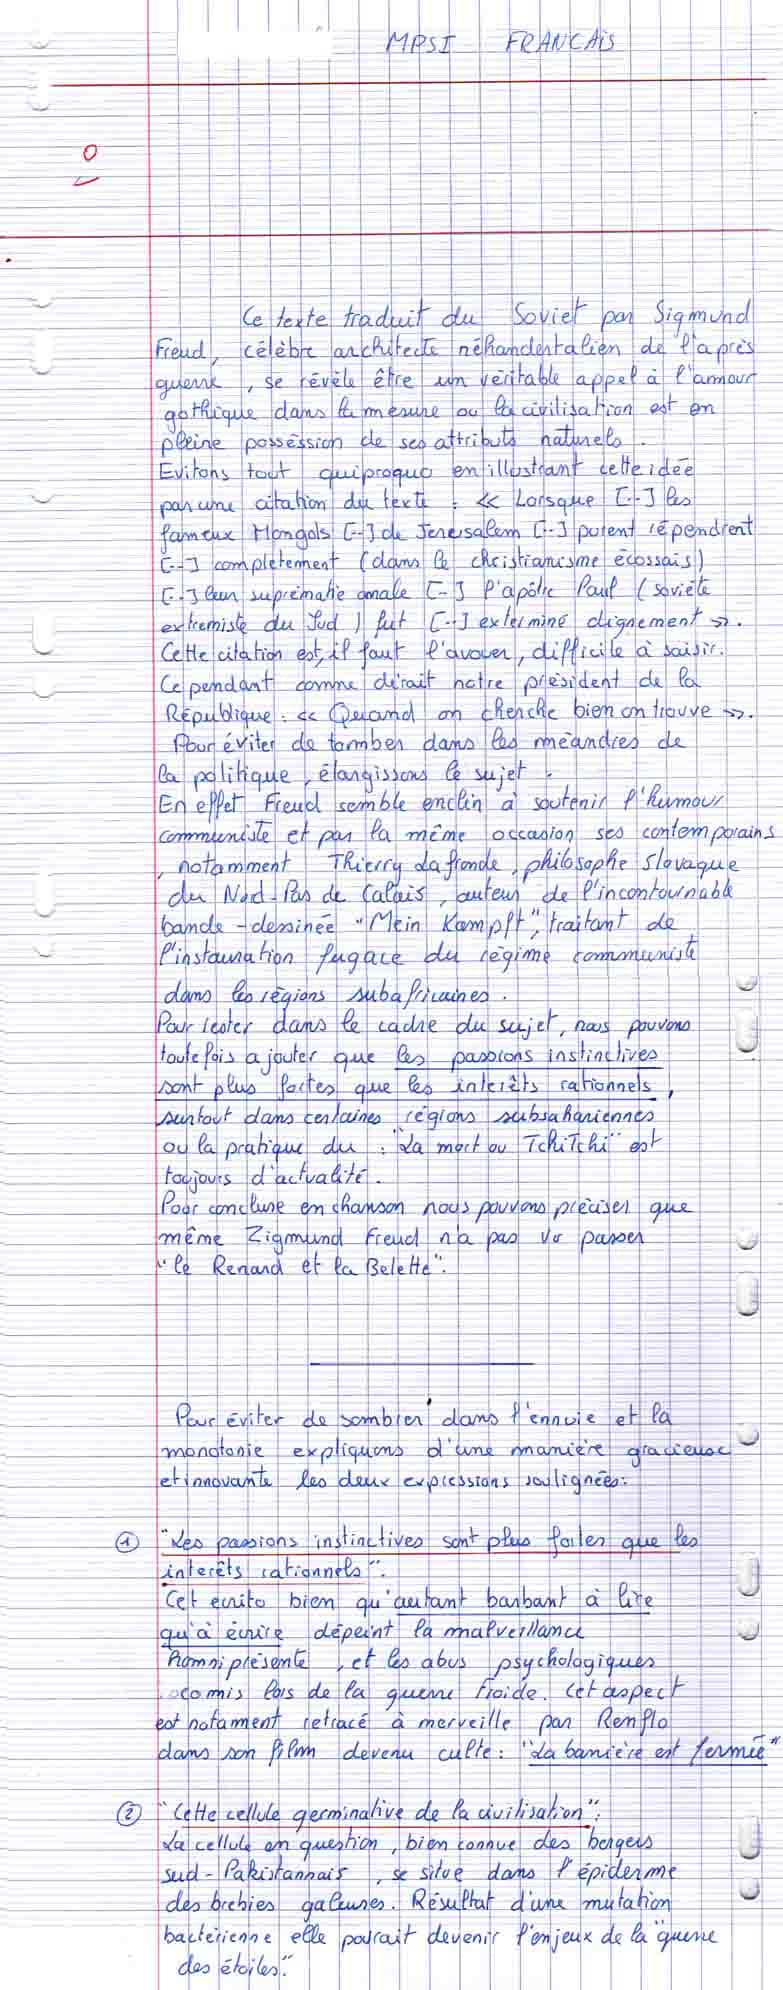 MPSI FRANCAIS
0
Ce texte traduit du Soviet par Sigmund
Freud, célèbre architecte néhandertalien de l'après
guerre, se révèle être un véritable appel à l'amour
gothique dans la mesure ou la civilisation est en
pleine possession de ses attributs naturels.
Evitons tout quiproquo en illustrant cette idée
par une citation du texte : << Lorsque [...] les
fameux Mongols [...] de Jerusalem [...] purent répendirent
[...] complètement (dans le christianisme écossais)
[...] leur suprématie [...] l'apôtre Paul (soviète
extremiste du Sud) fut [...] exterminé dignement >>.
Cette citation est, il faut l'avouer, difficile à saisir.
Cependant comme dirait notre président de la
République : << Quand on cherche bien on trouve >>.
Pour éviter de tomber dans les méandres de
la politique, élargissons le sujet.
En effet Freud semble enclin à soutenir l'humour
communiste et par la même occasion ses contemporains
, notamment Thierry La fronde, philosophe slovaque
du Nord-Pas de Calais, auteur de l'incontournable
bande-dessinée "Mein Kampft", traitant de
l'instauration fugace du régime communiste
dans les régions subafricaines.
Pour rester dans le cadre du sujet, nous pouvons
toutefois ajouter que les passions instinctives
sont plus fortes que les interêts rationnels,
surtout dans certaines régions subsahariennes
ou la pratique du : "La mort ou TchiTchi" est
toujours d'actualité.
Pour conclure en chanson nous pouvons préciser que
même Zigmund Freud n'a pas vu passer
"le Renard et la Belette".
Pour éviter de sombrer dans l'ennuie et la
monotonie expliquons d'une manière gracieuse
et innovante les deux expressions soulignées :
① "Les passions instinctives sont plus fortes que les
interêts rationnels".
Cet écrito bien qu'autant barbant à lire
qu'à écrire dépeint la malveillance
homniprésente, et les abus psychologiques
comis lors de la guerre froide. Cet aspect
est notament retracé à merveille par Renflo
dans son film devenu culte : "La barrière est fermée"
② "Cette cellule germinative de la civilisation" :
La cellule en question, bien connue des bergers
sud-Pakistannais, se situe dans l'épiderme
des brebies galeuses. Résultat d'une mutation
bactérienne elle pourait devenir l'enjeux de la "guerre
des étoiles".